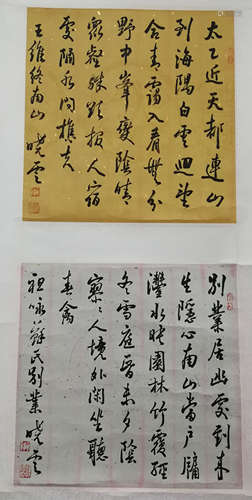 太乙近天都連山
到海隅白雲迴望
合青靄入看無分
野中峯變陰晴
眾壑殊欲投人宿
處隔水問樵夫
王維終南山 曉雲
別業居幽處到來
生隱心南山當戶牖
灃水映園林竹覆經
冬雪庭昏未夕陰
寥々人境外閑坐聽
春禽
祖咏蘇氏別業 曉雲